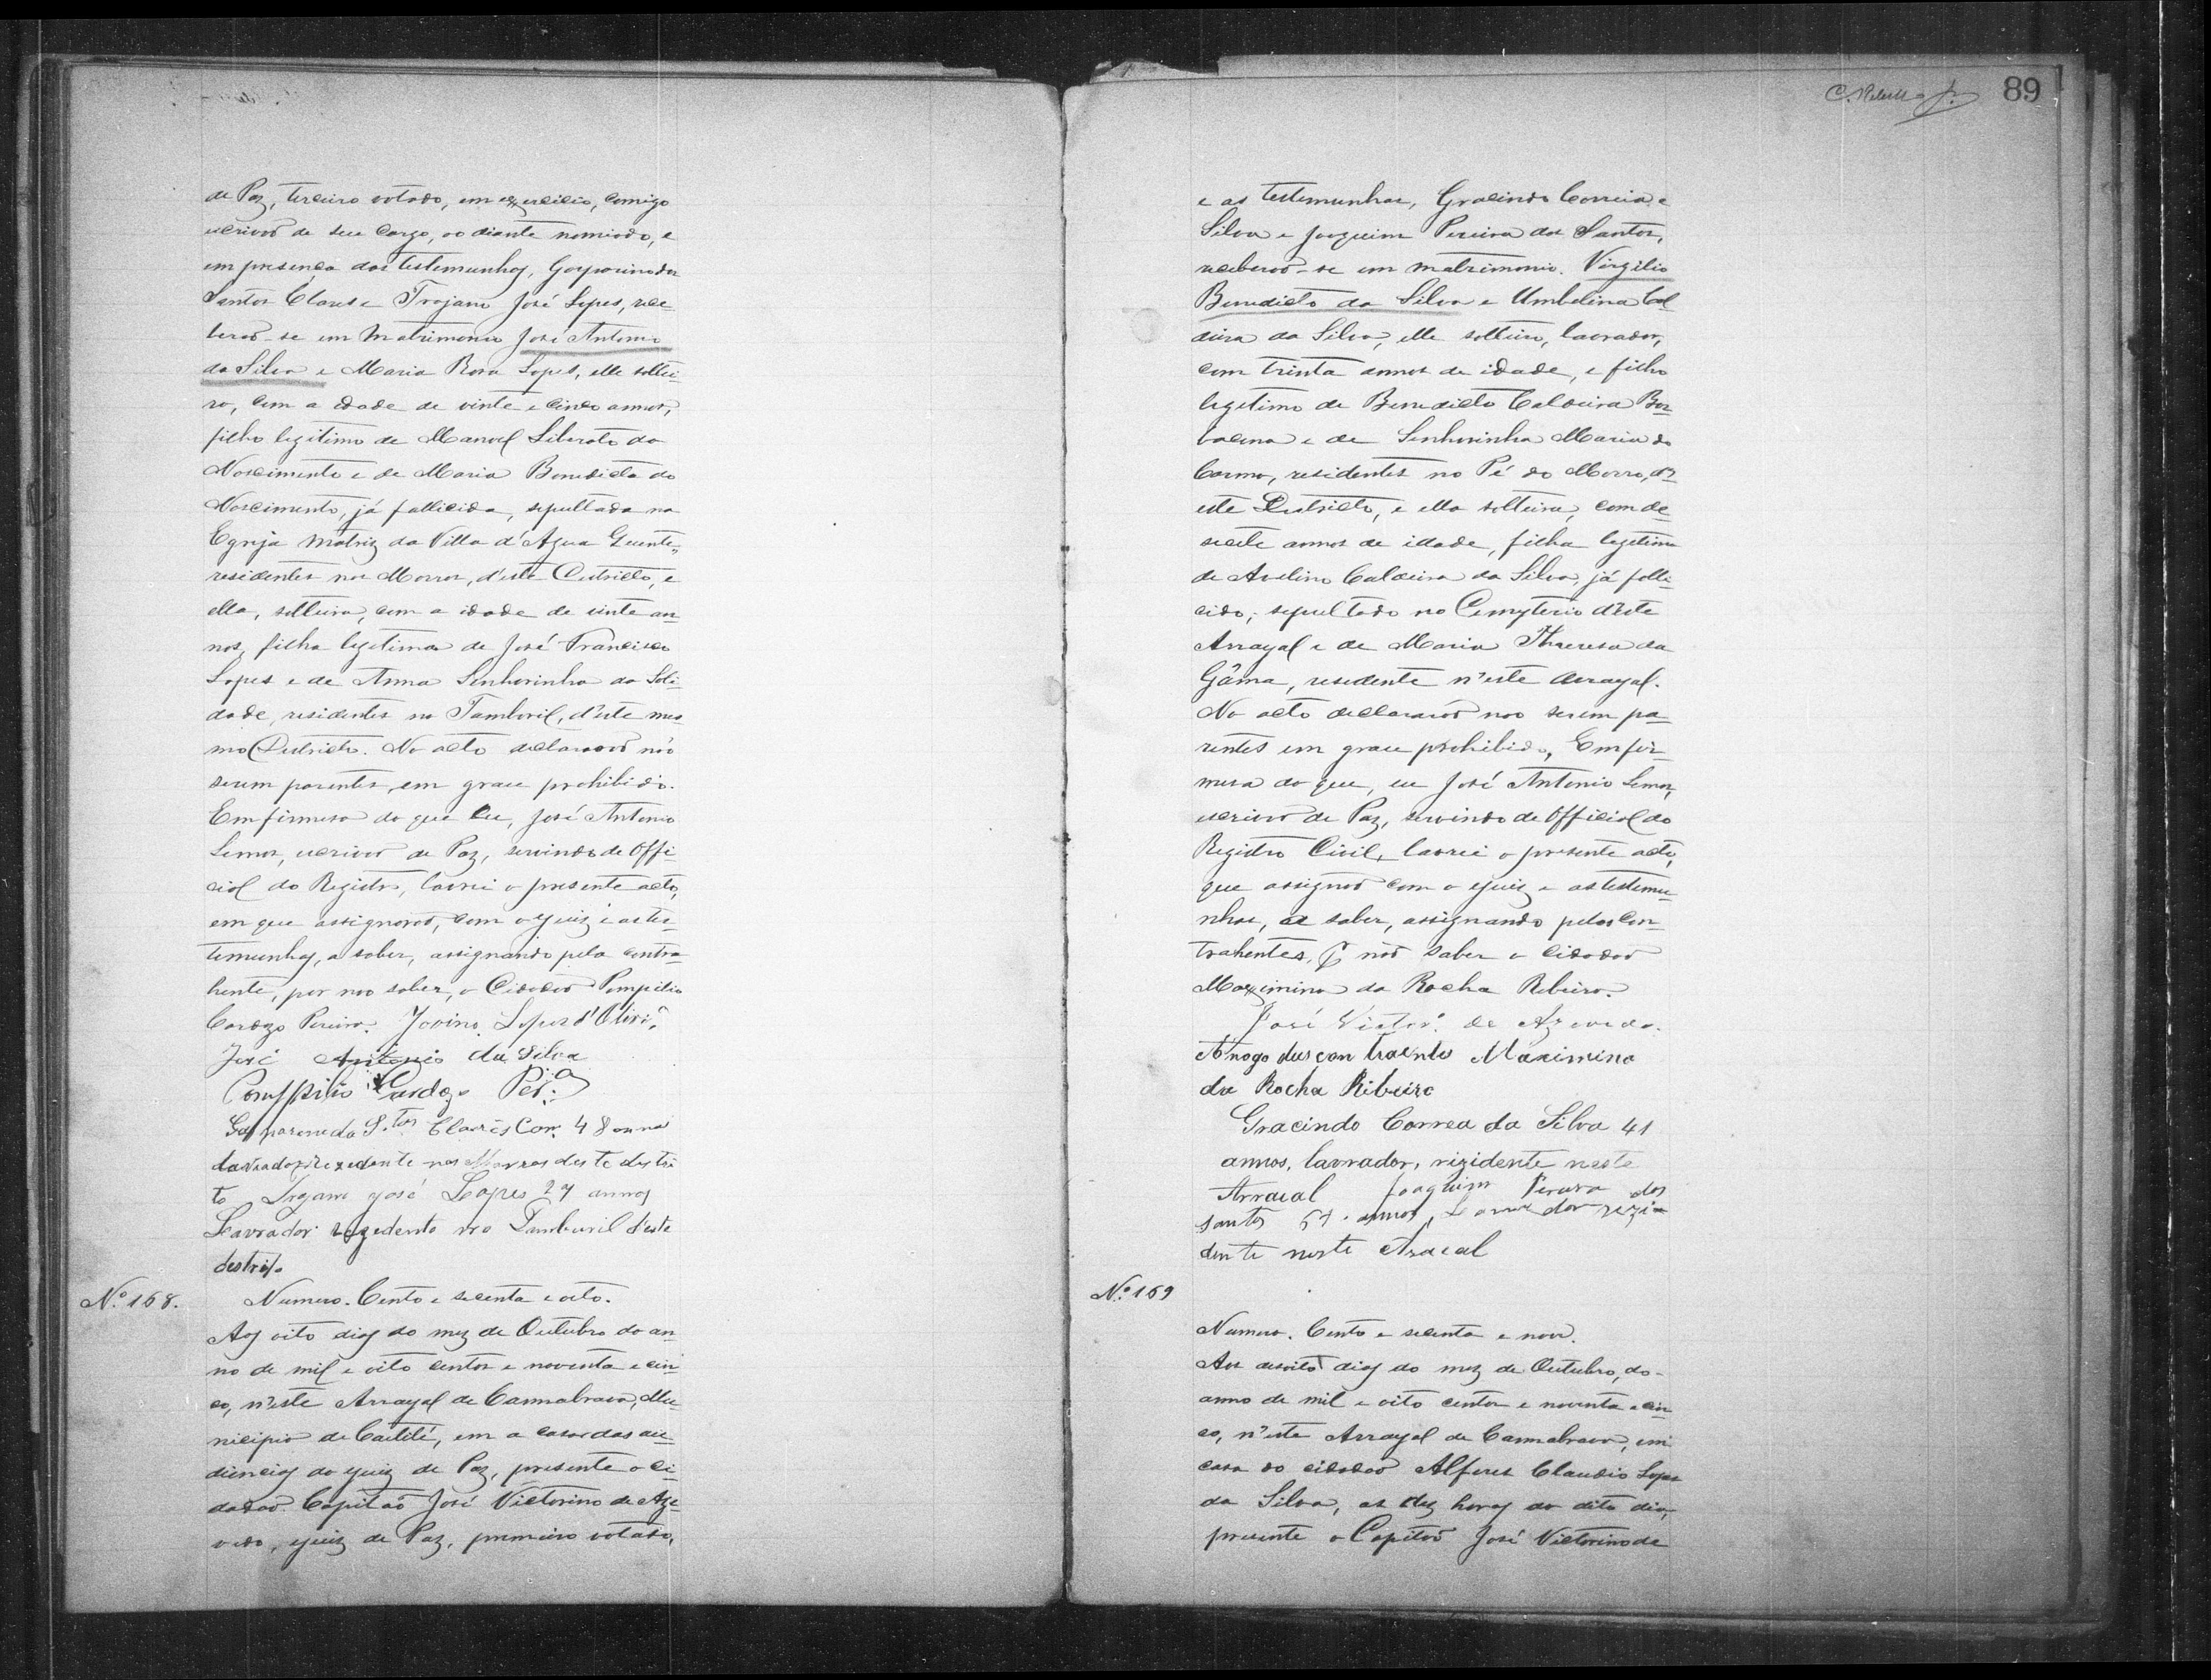 de Paz, terceiro votado, em exzercicio, comigo
escrivaõ de seu Cargo, ao diante nomiado, e
em presença das testemunhas, Gasparino dos
Santos Clares e Trojano José Lopes, rece-
beraõ-se em Matrimonio José Antonio
da Silva e Maria Rosa Lopes, elle soltei-
ro, com a idade de vinte e cinco annos,
filho legitimo de Manoel Liberato do
Nascimento e de Maria Benedicta do
Nascimento, já fallicida, sepultada na
Egreja Matriz da Villa d'Agua Quente,
residentes nos Morros, d'este Destricto, e
ella, solteira, com a idade de vinte an-
nos, filha legitima de José Francisco
Lopes e de Anna Senhorinha da Soli-
dade, residentes no Tamboril, d'este mes-
mo Destricto. No acto declararaõ não
serem parentes, em grau prohibido.
Em firmesa do que Eu, José Antonio
Lemos, escrivaõ de Paz, servindo de Offi-
cial do Registro, lavrei o presente acto,
em que assignaraõ, com o Juiz e as tes-
temunhas, a saber, assignando pela contra-
hente, por nao saber, o Cidadaõ Pompilio
Cardozo Pereira. Jovino Lopes d'Olivrª
José Antonio da Silva
Pompilio Cardozo Perª
Gasparino da S.tos Clares Com 48 anno
lavrador rezedente nos Morros deste destri
to Trojano José Lopes 27 annos
Lavrador rezedente no Tamburil d'este
destrito
Nº 168.
Numero. Cento e secenta e oito.
Aos oito dias do mez de Outubro do an-
no de mil e oito centos e noventa e cin-
co, n'este Arrayal de Cannabrava, Mu-
nicipio de Caetité, em a casa das au-
diencias do Juiz de Paz, presente o ci-
dadaõ Capitaõ José Victorino de Aze-
vedo, Juiz de Paz, premeiro votado,
89
e as testemunhas, Gracindo Correia e
Silva e Joaquim Pereira dos Santos,
receberaõ-se em matrimonio. Virgilio
Benedicto da Silva e Umbelina Cal-
deira da Silva, elle solteiro, lavrador,
com trinta annos de idade, e filho
legitimo de Benedicto Caldeira Bar-
bacena e de Senhorinha Maria do
Carmo, residentes no Pé do Morro, d'-
este Destricto, e ella solteira, com de-
secete annos de idade, filha legitima
de Avelino Caldeira da Silva, já falle-
cido, sepultado no Cemyterio d'este
Arrayal e de Maria Thereresa da
Gâma, resedente n'este Arrayal.
No acto declararaõ nao serem pa-
rentes em grau prohibido, Em fir-
mesa do que, eu José Antonio Lemos,
escrivaõ de Paz, servindo de Official do
Registro Civil, lavrei o presente acto,
que assignaõ com o Juiz e as testemu-
nhas, a saber, assignando pelos Con-
trahentes, p. naõ saber o cidadaõ
Maxzimino da Rocha Ribeiro.
José Victorº de Azevedo.
A rogo dus contraente Maximino
da Rocha Ribeiro
Gracindo Correa da Silva 41
annos, lavrador, rizidente neste
Arraial Joaquim Perura dos
Santos annos, Lavrador rezi
dente neste Araial
Nº 169
Numero. Cento e secenta e nove.
Aos desoito dias do mez de Outubro, do-
anno de mil e oito centos e noventa e cin-
co, n'este Arrayal de Cannabrava, em
casa do cidadaõ Alferes Claudio Lopes
da Silva, as dez horas do dito dia,
presente o Capitaõ José Victorino de